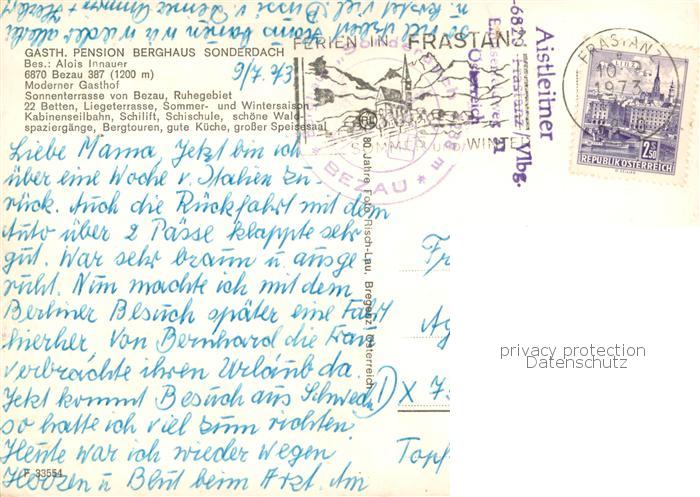 GASTH. PENSION BERGHAUS SONDERDACH
Bes.: Alois Innauer
6870 Bezau 387 (1200 m)
Moderner Gasthof
Sonnenterrasse von Bezau, Ruhegebiet
22 Betten, Liegeterrasse, Sommer- und Wintersaison
Kabinenseilbahn, Schilift, Schischule, schöne Wald-
spaziergänge, Bergtouren, gute Küche, großer Speisesaal
9/7. 73
FERIEN IN FRASTANZ
SOMMER UND WINTER
BEZAU
FRASTANZ
1973
REPUBLIK ÖSTERREICH
2.50
Aistleitner
Frastanz/Vlbg.
Österreich
80 Jahre Foto Risch-Lau, Bregenz, Österreich
Liebe Mama, Jetzt bin ich
über eine Woche v. Italien zu-
rück. Auch die Rückfahrt mit dem
Auto über 2 Pässe klappte sehr
gut. War sehr braun u ausge
ruht. Nun machte ich mit dem
Berliner Besuch später eine Fahrt
hierher, Von Bernhard die Frau
verbrachte ihren Urlaub da
Jetzt kommt Besuch aus Schweden
so hatte ich viel zum richten.
Heute war ich wieder wegen
Herzen u Blut beim Arzt. Am
X 75
Topf
F 33554
privacy protection
Datenschutz